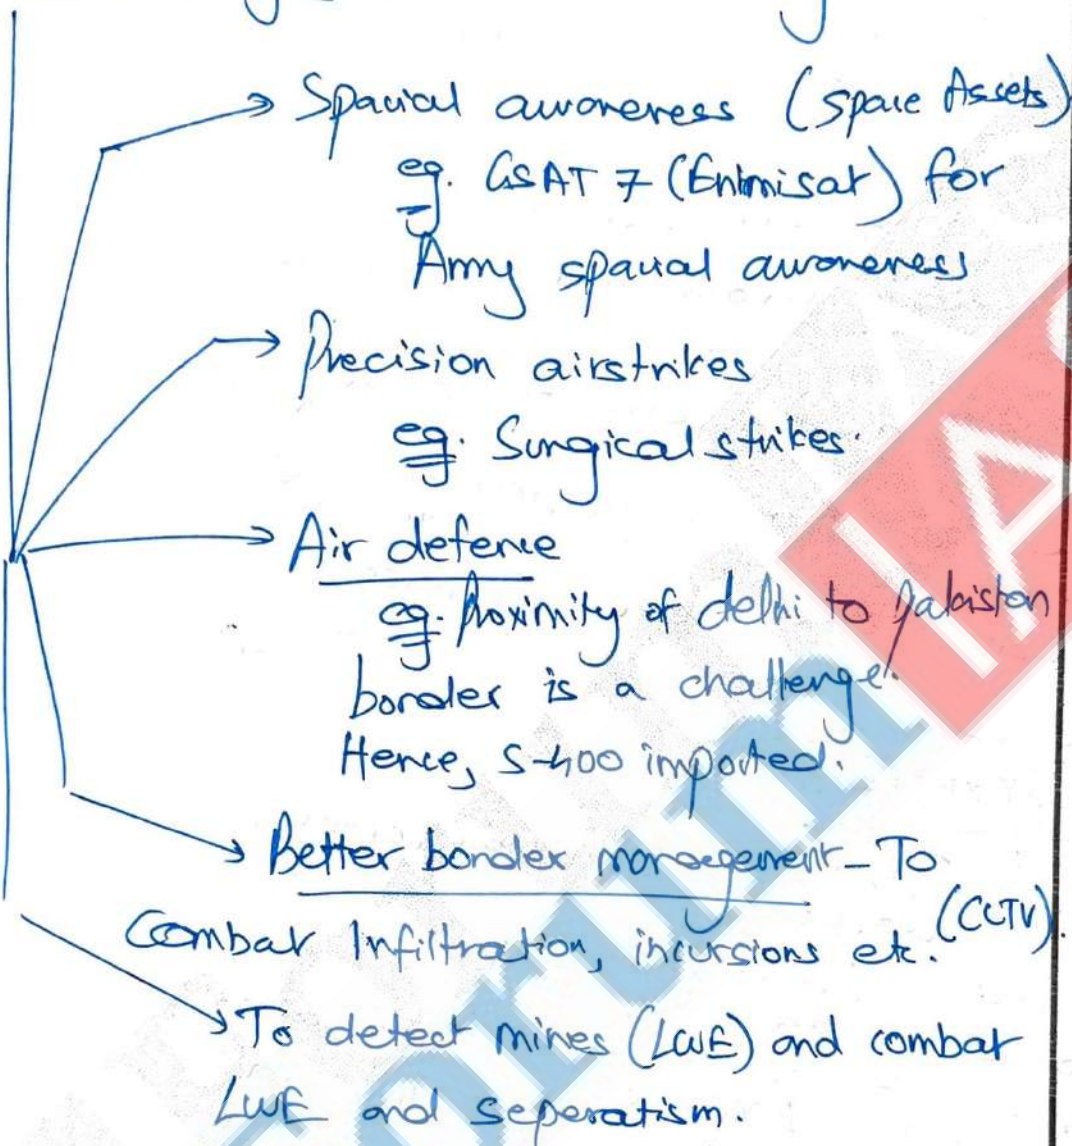 Spacial awareness (space Assets)
eg. GSAT 7 (Enimisat) for
Army spacial awareness
Precision airstrikes
eg. Surgical strikes.
Air defence
eg. Proximity of delhi to Pakistan
border is a challenge.
Hence, S-400 imported.
Better border management - To
Combat Infiltration, incursions etc. (CCTV).
To detect mines (LWE) and combat
LWE and seperatism.
IAS
orum